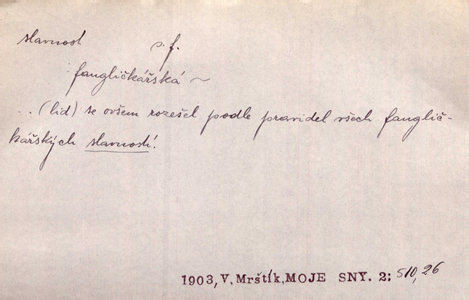 slavnost s. f.
fangličkářská ~
... (lid) se ovšem rozešel podle pravidel všech fanglič-
kářských slavností!
1903, V. Mrštík, MOJE SNY. 2: 510, 26